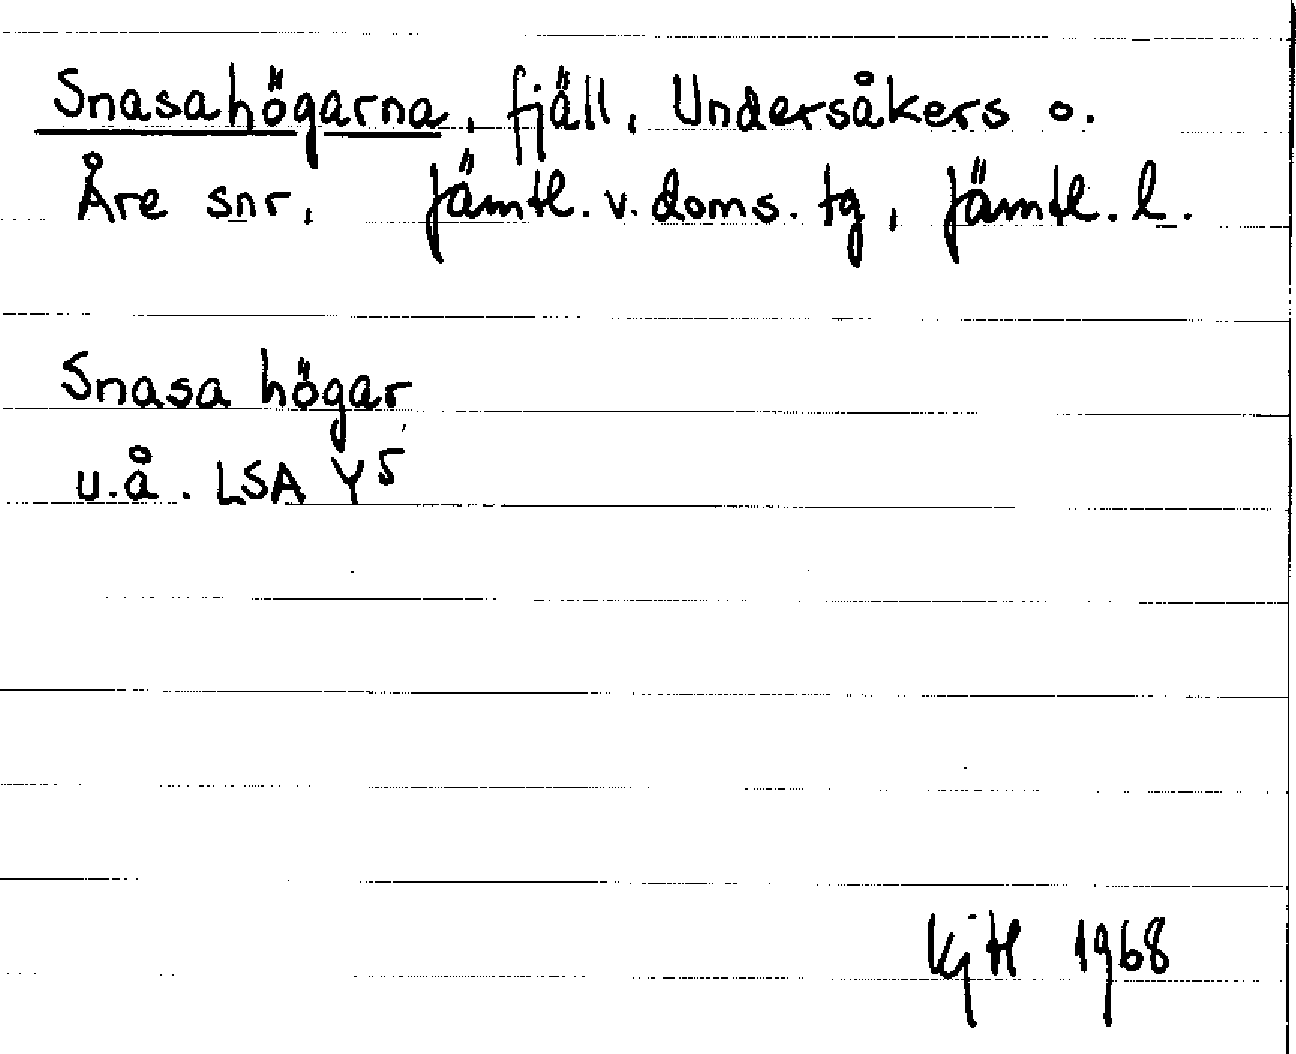 Snasahögarna, fjäll, Undersåkers o.
Åre snr, Jämtl. v. doms. tg, Jämtl. l.
Snasa högar
u.å. LSA Y5
1968